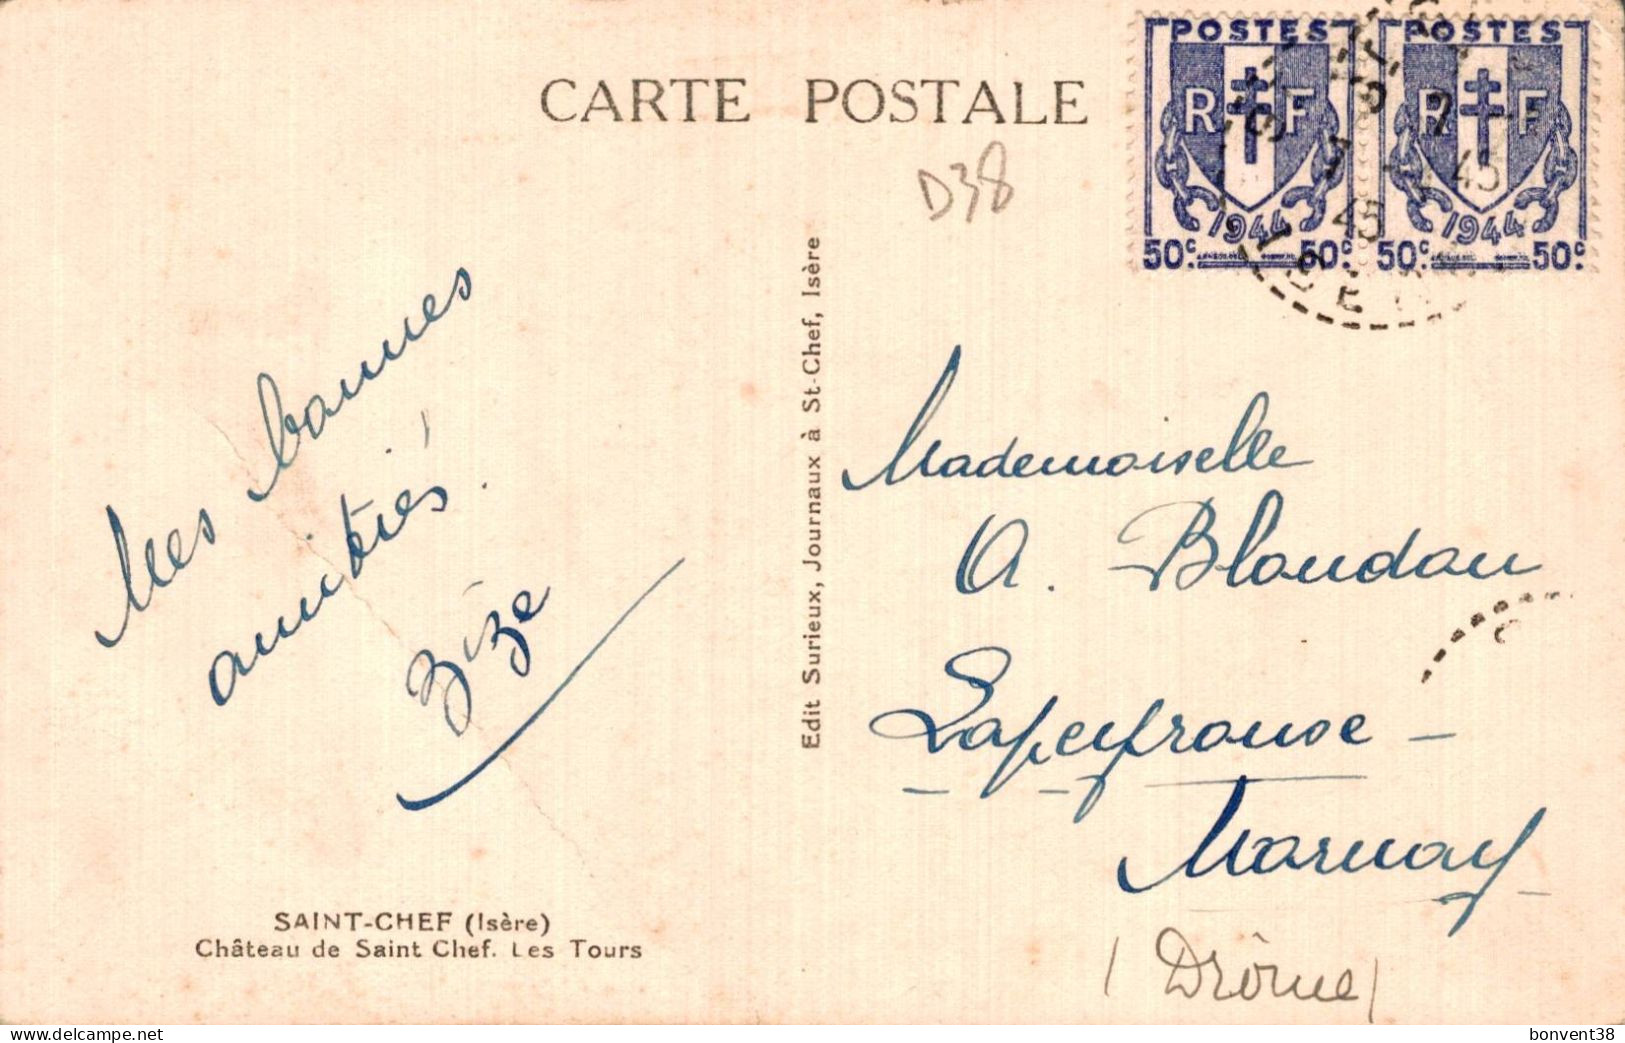 CARTE POSTALE
D38
POSTES
R F
1944
50c. 50c.
POSTES
R F
1944
50c. 50c.
45
45
ISERE
Mes bonnes
amitiés.
Zize
Edit Surieux, Journaux à St-Chef, Isère
Mademoiselle
A. Blondan
Lapeyrouse -
Mornay
(Drôme)
SAINT-CHEF (Isère)
Château de Saint Chef. Les Tours
bonvent38